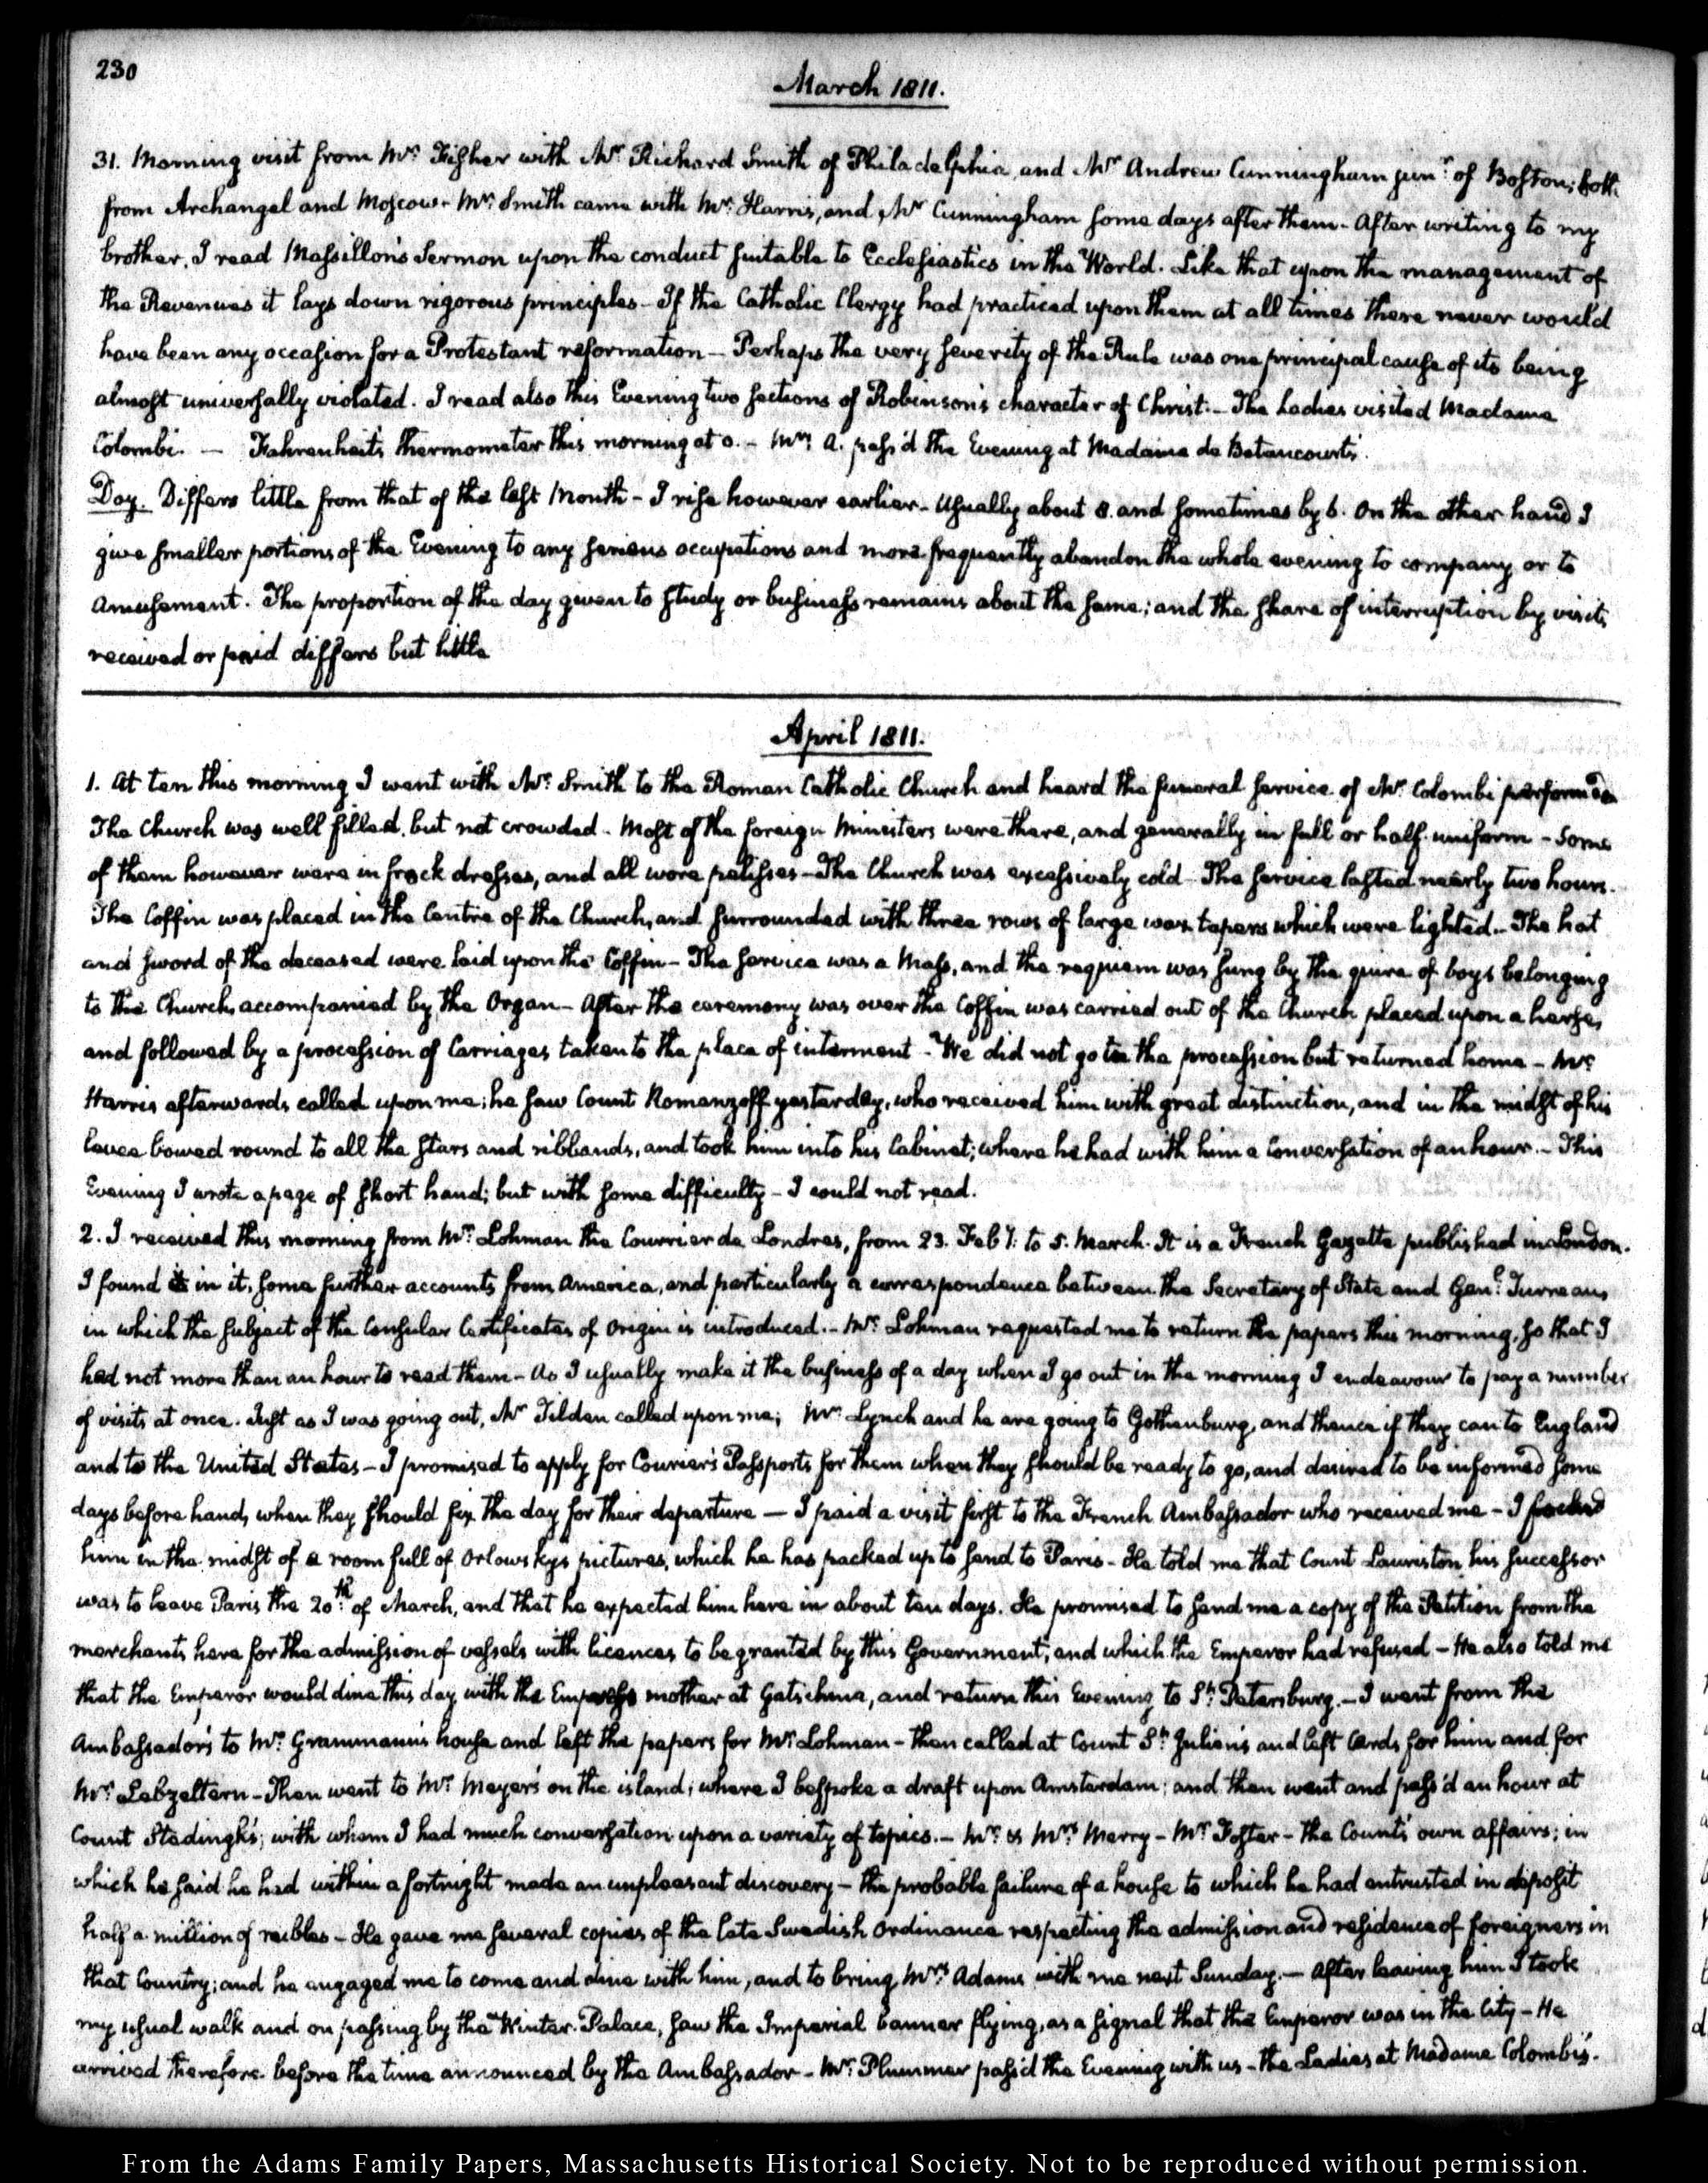 230
March 1811.
31. Morning visit from Mr. Fisher with Mr Richard Smith of Philadelphia, and Mr Andrew Cunningham junr. of Boston; both
from Archangel and Moscow. Mr. Smith came with Mr. Harris, and Mr Cunningham some days after them. After writing to my
brother, I read Massillon's Sermon upon the conduct suitable to Ecclesiastics in the World. Like that upon the management of
the Revenues it lays down rigorous principles - If the Catholic Clergy had practiced upon them at all times there never would
have been any occasion for a Protestant reformation - Perhaps the very severity of the Rule was one principal cause of its being
almost universally violated. I read also this Evening two sections of Robinson's character of Christ. - The Ladies visited Madame
Colombi. - Fahrenheit's thermometer this morning at 0. - Mrs. A. pass'd the Evening at Madame de Betancourt's.
Day. Differs little from that of the last Month - I rise however earlier. Usually about 8. and sometimes by 6. On the other hand I
give smaller portions of the Evening to any serious occupations and more frequently abandon the whole evening to company or to
Amusement. The proportion of the day given to study or business remains about the same; and the share of interruption by visits
received or paid differs but little
April 1811.
1. At ten this morning I went with Mr. Smith to the Roman Catholic Church and heard the funeral service of Mr. Colombi performed
The Church was well filled, but not crowded. Most of the foreign Ministers were there, and generally in full or half uniform - Some
of them however were in frock dresses, and all wore pelisses - The Church was excessively cold - The service lasted nearly two hours.
The Coffin was placed in the Centre of the Church, and surrounded with three rows of large wax tapers which were lighted. - The hat
and sword of the deceased were laid upon the Coffin - The service was a Mass, and the requiem was sung by the quire of boys belonging
to the Church, accompanied by the Organ - After the ceremony was over the Coffin was carried out of the Church placed upon a herse,
and followed by a procession of Carriages taken to the place of interment - We did not go to the procession but returned home - Mr.
Harris afterwards called upon me; he saw Count Romanzoff yesterday, who received him with great distinction, and in the midst of his
levee bowed round to all the stars and ribbands, and took him into his Cabinet; where he had with him a Conversation of an hour. - This
Evening I wrote a page of short hand; but with some difficulty - I could not read.
2. I received this morning from Mr. Lohman the Courrier de Londres, from 23. Feby. to 5. March. It is a French Gazette published in London.
I found in it, some further accounts from America, and particularly a correspondence between the Secretary of State and Genl. Turreau,
in which the subject of the Consular Certificates of Origin is introduced. - Mr. Lohman requested me to return the papers this morning, so that I
had not more than an hour to read them - As I usually make it the business of a day when I go out in the morning I endeavour to pay a number
of visits at once. Just as I was going out, Mr Tilden called upon me; Mr. Lynch and he are going to Gothenburg, and thence if they can to England
and to the United States - I promised to apply for Courier's Passports for them when they should be ready to go, and desired to be informed some
days before hand, when they should fix the day for their departure - I paid a visit first to the French Ambassador who received me - I found
him in the midst of a room full of Orlowsky's pictures, which he has packed up to send to Paris - He told me that Count Lauriston, his successor
was to leave Paris the 20th. of March, and that he expected him here in about ten days. He promised to send me a copy of the Petition from the
merchants here for the admission of vessels with licences to be granted by this Government; and which the Emperor had refused - He also told me
that the Emperor would dine this day with the Empress mother at Gatschina, and return this Evening to St. Petersburg. - I went from the
Ambassador's to Mr. Grammann's house and left the papers for Mr Lohman - then called at Count St. Julien's and left Cards for him and for
Mr. Lebzeltern - Then went to Mr. Meyer's on the island; where I bespoke a draft upon Amsterdam; and then went and pass'd an hour at
Count Stedingk's; with whom I had much conversation upon a variety of topics. - Mr. & Mrs. Merry - Mr. Foster - The Count's own affairs; in
which he said he had within a fortnight made an unpleasant discovery - the probable failure of a house to which he had entrusted in deposit
half a million of roubles - He gave me several copies of the late Swedish Ordinance respecting the admission and residence of foreigners in
that Country; and he engaged me to come and dine with him, and to bring Mrs. Adams with me next Sunday. - After leaving him I took
my usual walk and on passing by the Winter Palace, saw the Imperial banner flying, as a signal that the Emperor was in the City - He
arrived therefore before the time announced by the Ambassador - Mr. Plummer pass'd the Evening with us - the Ladies at Madame Colombi's.
From the Adams Family Papers, Massachusetts Historical Society. Not to be reproduced without permission.